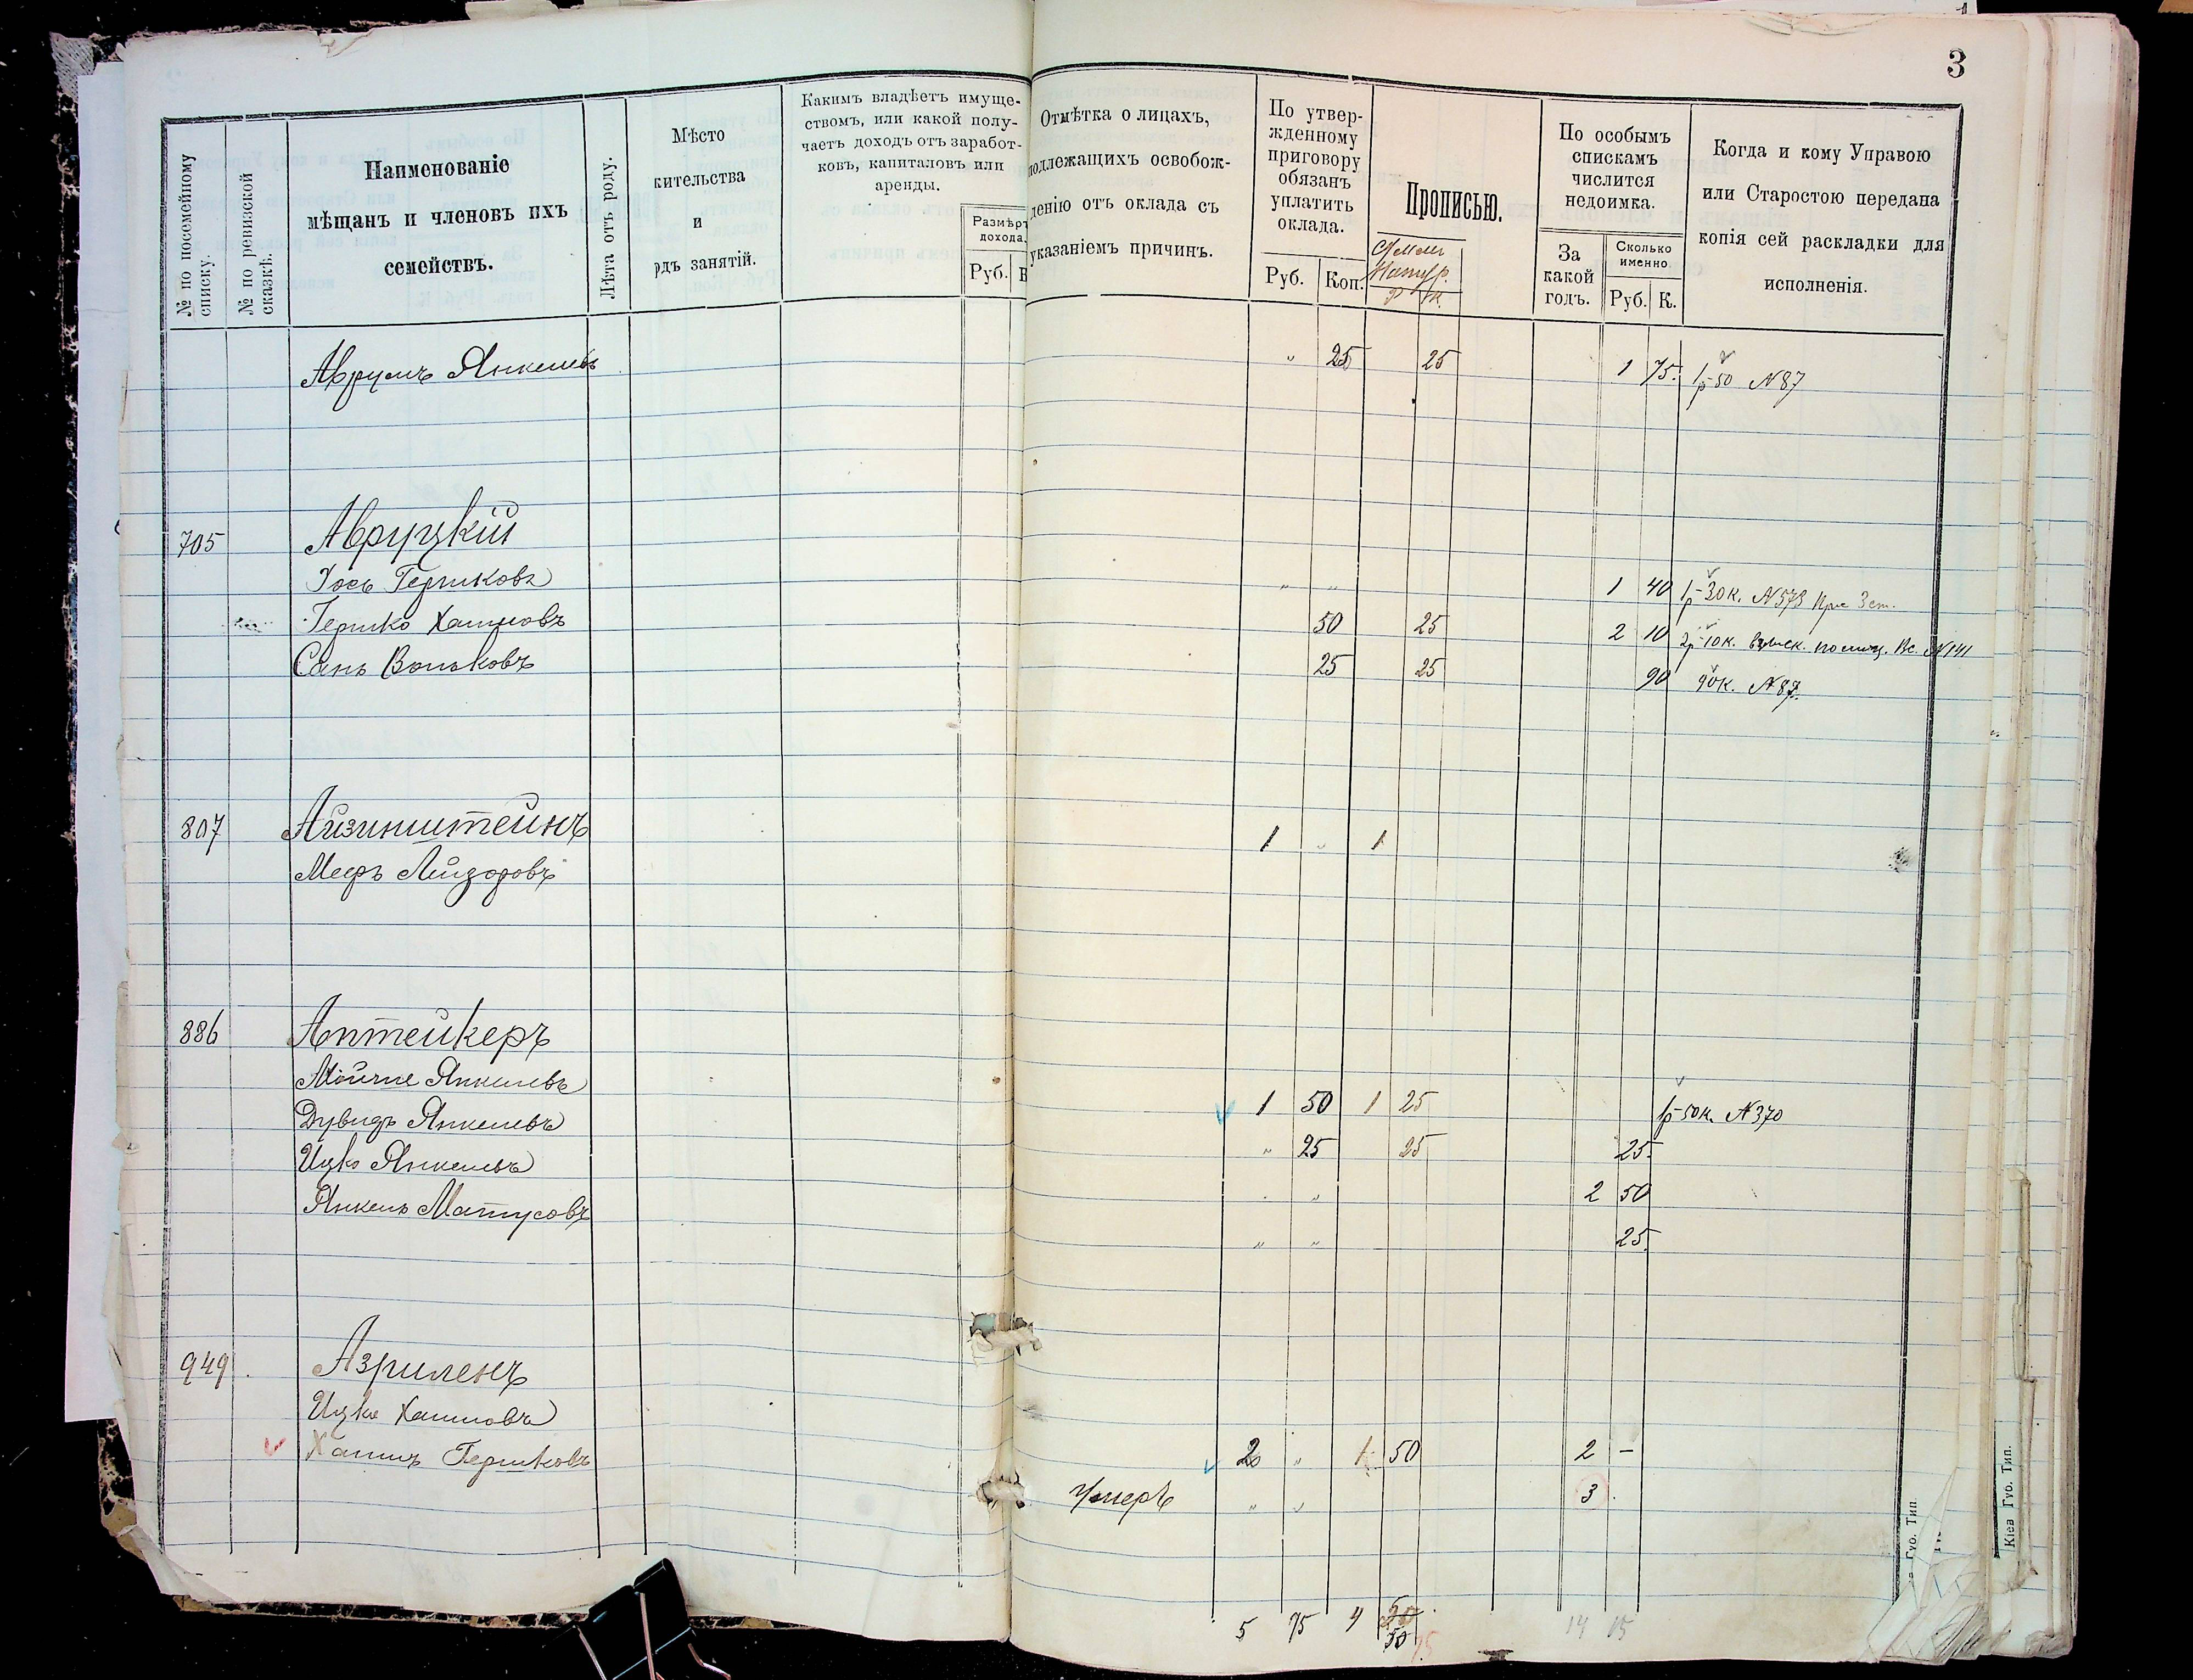 3
№ по посемейному списку.
№ по ревизской сказкѣ.
Наименованіе мѣщанъ и членовъ ихъ семействъ.
Лѣта отъ роду.
Мѣсто жительства и родъ занятій.
Какимъ владѣетъ имуществомъ, или какой получаетъ доходъ отъ заработковъ, капиталовъ или аренды.
Размѣръ дохода.
Руб.
Отмѣтка о лицахъ, подлежащихъ освобожденію отъ оклада съ указаніемъ причинъ.
По утвержденному приговору обязанъ уплатить оклада.
Руб. Коп.
Прописью.
Р К.
По особымъ спискамъ числится недоимка.
За какой годъ.
Сколько именно
Руб. К.
Когда и кому Управою или Старостою передана копія сей раскладки для исполненія.
Аврумъ Янкелевъ " 25 25 1 75. 1р-50 №87
705 Авруцкій
Іось Гершковъ " " 1 40 1р-30к. №578
Гершко Хаимовъ 50 25 2 10 2р-10к. №141
Сань Вольковъ 25 25 90 90к. №87.
807 Айзинштейнъ 1 " 1
Мееръ Лейзоровъ
886 Аптейкеръ
Мойше Янкелевъ 1 50 1 25 1р-50к. №370
Дувидъ Янкелевъ " 25 25 25.
Ицко Янкелевъ " " 2 50
Янкель Матусовъ " " 25.
949. Азриленъ
Ицко Хаимовъ 2 " 1 50 2 -
Хаимъ Гершковъ Умеръ " " 3.
5 75 4 50 14 15
Губ. Тип.
Кіев Губ. Тип.